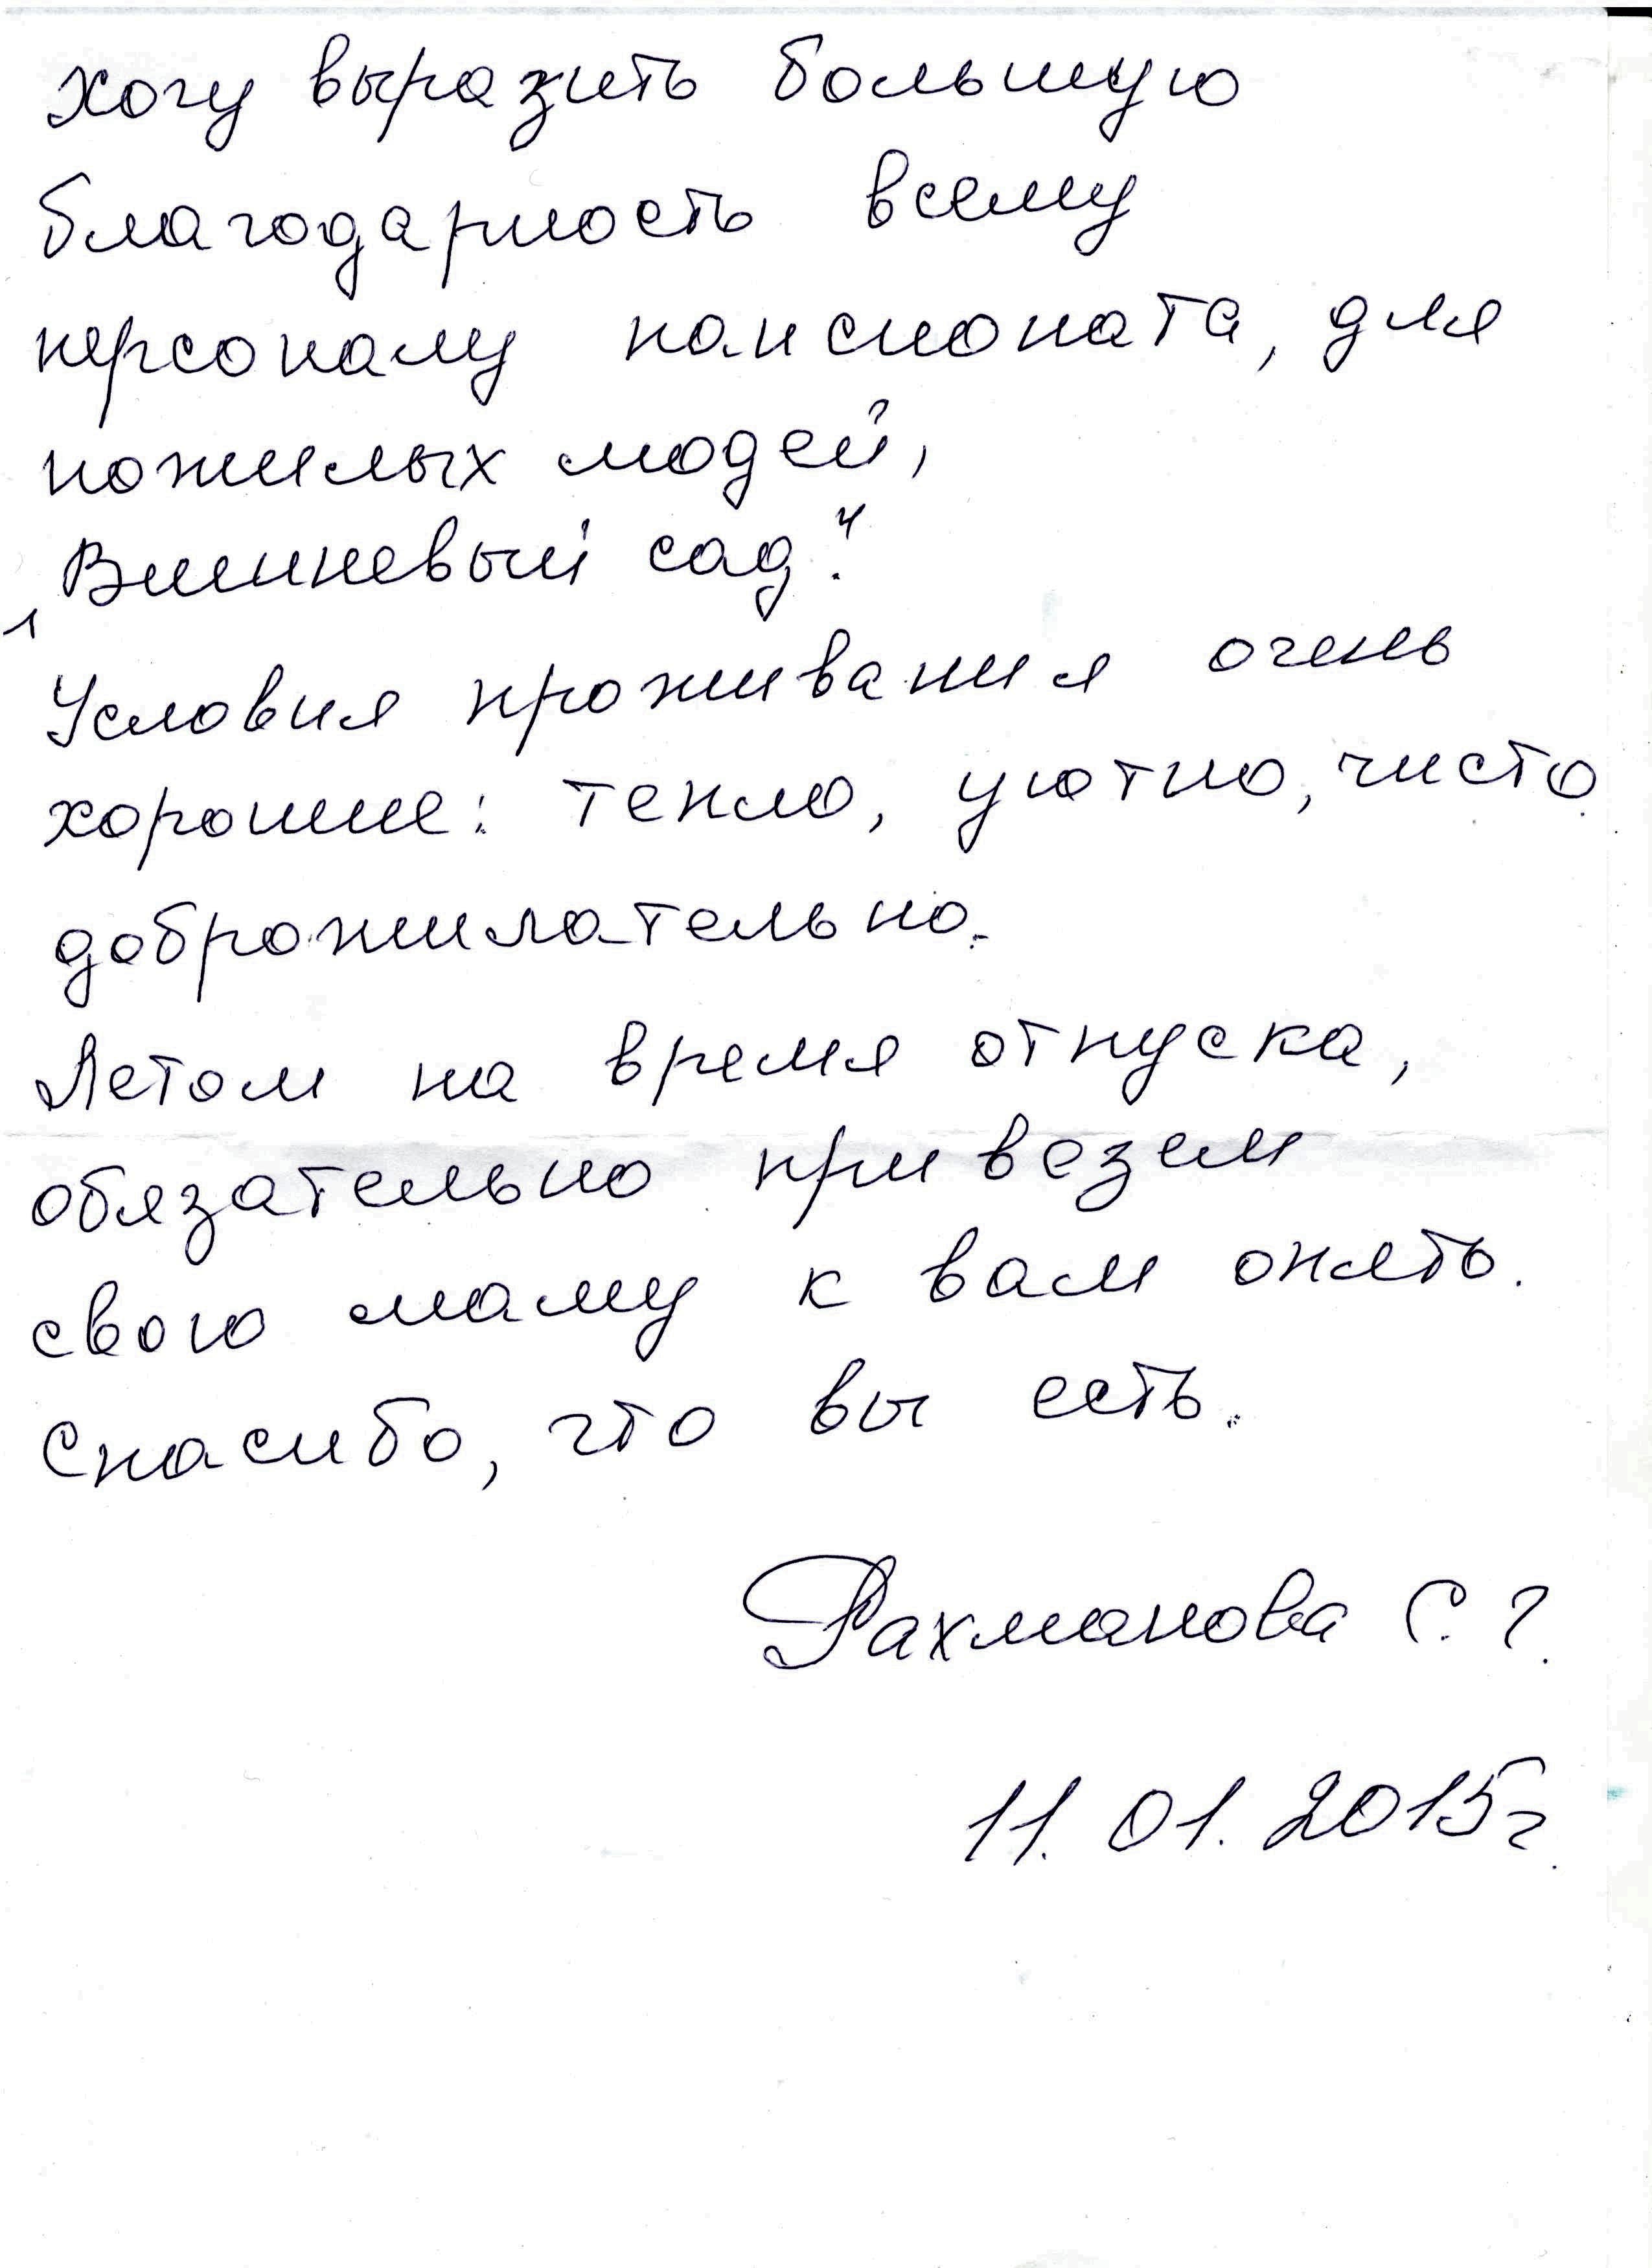 хочу выразить большую
благодарность всему
персоналу пансионата, для
пожилых людей,
"Вишневый сад".
Условия проживания очень
хорошие: тепло, уютно, чисто
доброжилательно.
Летом на время отпуска,
обязательно привезем
свою маму к вам опять.
Спасибо, что вы есть.
Рахманова С. Г.
11.01.2015г.